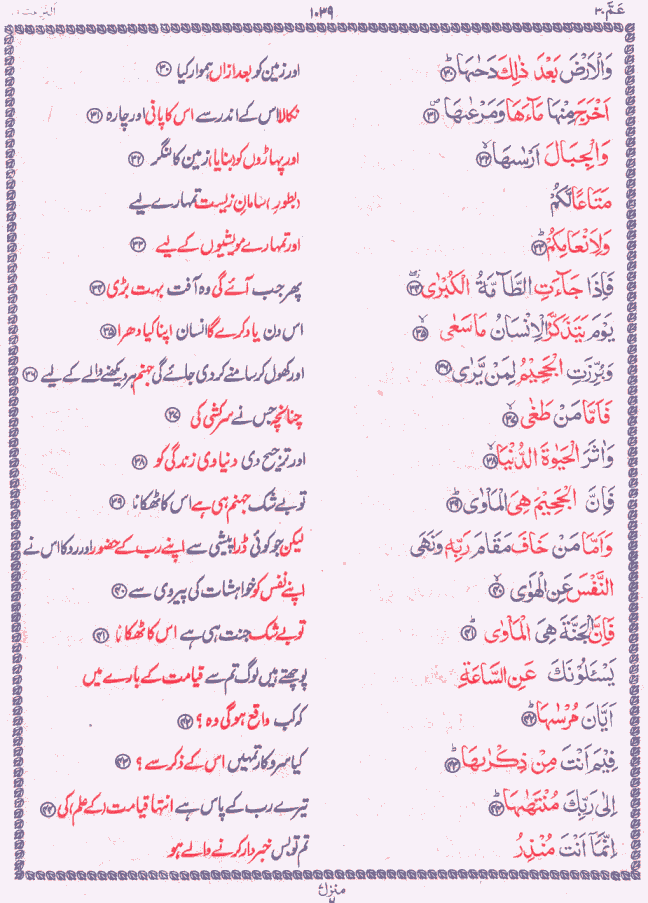 عَمَّ ۳۰ ۱۰۳۹ النّٰزعٰت
وَالْاَرْضَ بَعْدَ ذٰلِكَ دَحٰىهَا ۳۰ اور زمین کو بعد ازاں ہموار کیا ۳۰
اَخْرَجَ مِنْهَا مَآءَهَا وَمَرْعٰىهَا ۳۱ نکالا اس کے اندر سے اس کا پانی اور چارہ ۳۱
وَالْجِبَالَ اَرْسٰىهَا ۳۲ اور پہاڑوں کو (بنایا) زمین کا لنگر ۳۲
مَتَاعًا لَّكُمْ (بطور) سامانِ زیست تمہارے لیے
وَلِاَنْعَامِكُمْ ۳۳ اور تمہارے مویشیوں کے لیے ۳۳
فَاِذَا جَآءَتِ الطَّآمَّةُ الْكُبْرٰى ۳۴ پھر جب آئے گی وہ آفت بہت بڑی ۳۴
يَوْمَ يَتَذَكَّرُ الْاِنْسَانُ مَا سَعٰى ۳۵ اس دن یاد کرے گا انسان اپنا کیا دھرا ۳۵
وَبُرِّزَتِ الْجَحِيْمُ لِمَنْ يَّرٰى ۳۶ اور کھول کر سامنے کر دی جائے گی جہنم ہر دیکھنے والے کے لیے ۳۶
فَاَمَّا مَنْ طَغٰى ۳۷ چنانچہ جس نے سرکشی کی ۳۷
وَاٰثَرَ الْحَيٰوةَ الدُّنْيَا ۳۸ اور ترجیح دی دنیاوی زندگی کو ۳۸
فَاِنَّ الْجَحِيْمَ هِيَ الْمَاْوٰى ۳۹ تو بے شک جہنم ہی ہے اس کا ٹھکانا ۳۹
وَاَمَّا مَنْ خَافَ مَقَامَ رَبِّهٖ وَنَهَى لیکن جو کوئی ڈرا پیشی سے اپنے رب کے حضور اور روکا اس نے
النَّفْسَ عَنِ الْهَوٰى ۴۰ اپنے نفس کو خواہشات کی پیروی سے ۴۰
فَاِنَّ الْجَنَّةَ هِيَ الْمَاْوٰى ۴۱ تو بے شک جنت ہی ہے اس کا ٹھکانا ۴۱
يَسْـَٔلُوْنَكَ عَنِ السَّاعَةِ پوچھتے ہیں لوگ تم سے قیامت کے بارے میں
اَيَّانَ مُرْسٰىهَا ۴۲ کہ کب واقع ہوگی وہ؟ ۴۲
فِيْمَ اَنْتَ مِنْ ذِكْرٰىهَا ۴۳ کیا سروکار تمہیں اس کے ذکر سے؟ ۴۳
اِلٰى رَبِّكَ مُنْتَهٰىهَا ۴۴ تیرے رب کے پاس ہے انتہا قیامت (کے علم) کی ۴۴
اِنَّمَآ اَنْتَ مُنْذِرُ تم تو بس خبردار کرنے والے ہو
منزل ۷